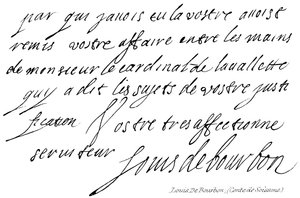 par qui javois eu la vostre avois
remis vostre affaire entre les mains
de monsieur le cardinal de lavallette
quy a dit les sujets de vostre justi
fication Vostre tres affectionne
serviteur Louis de bourbon
Louis De Bourbon, (Comte de Soissons)